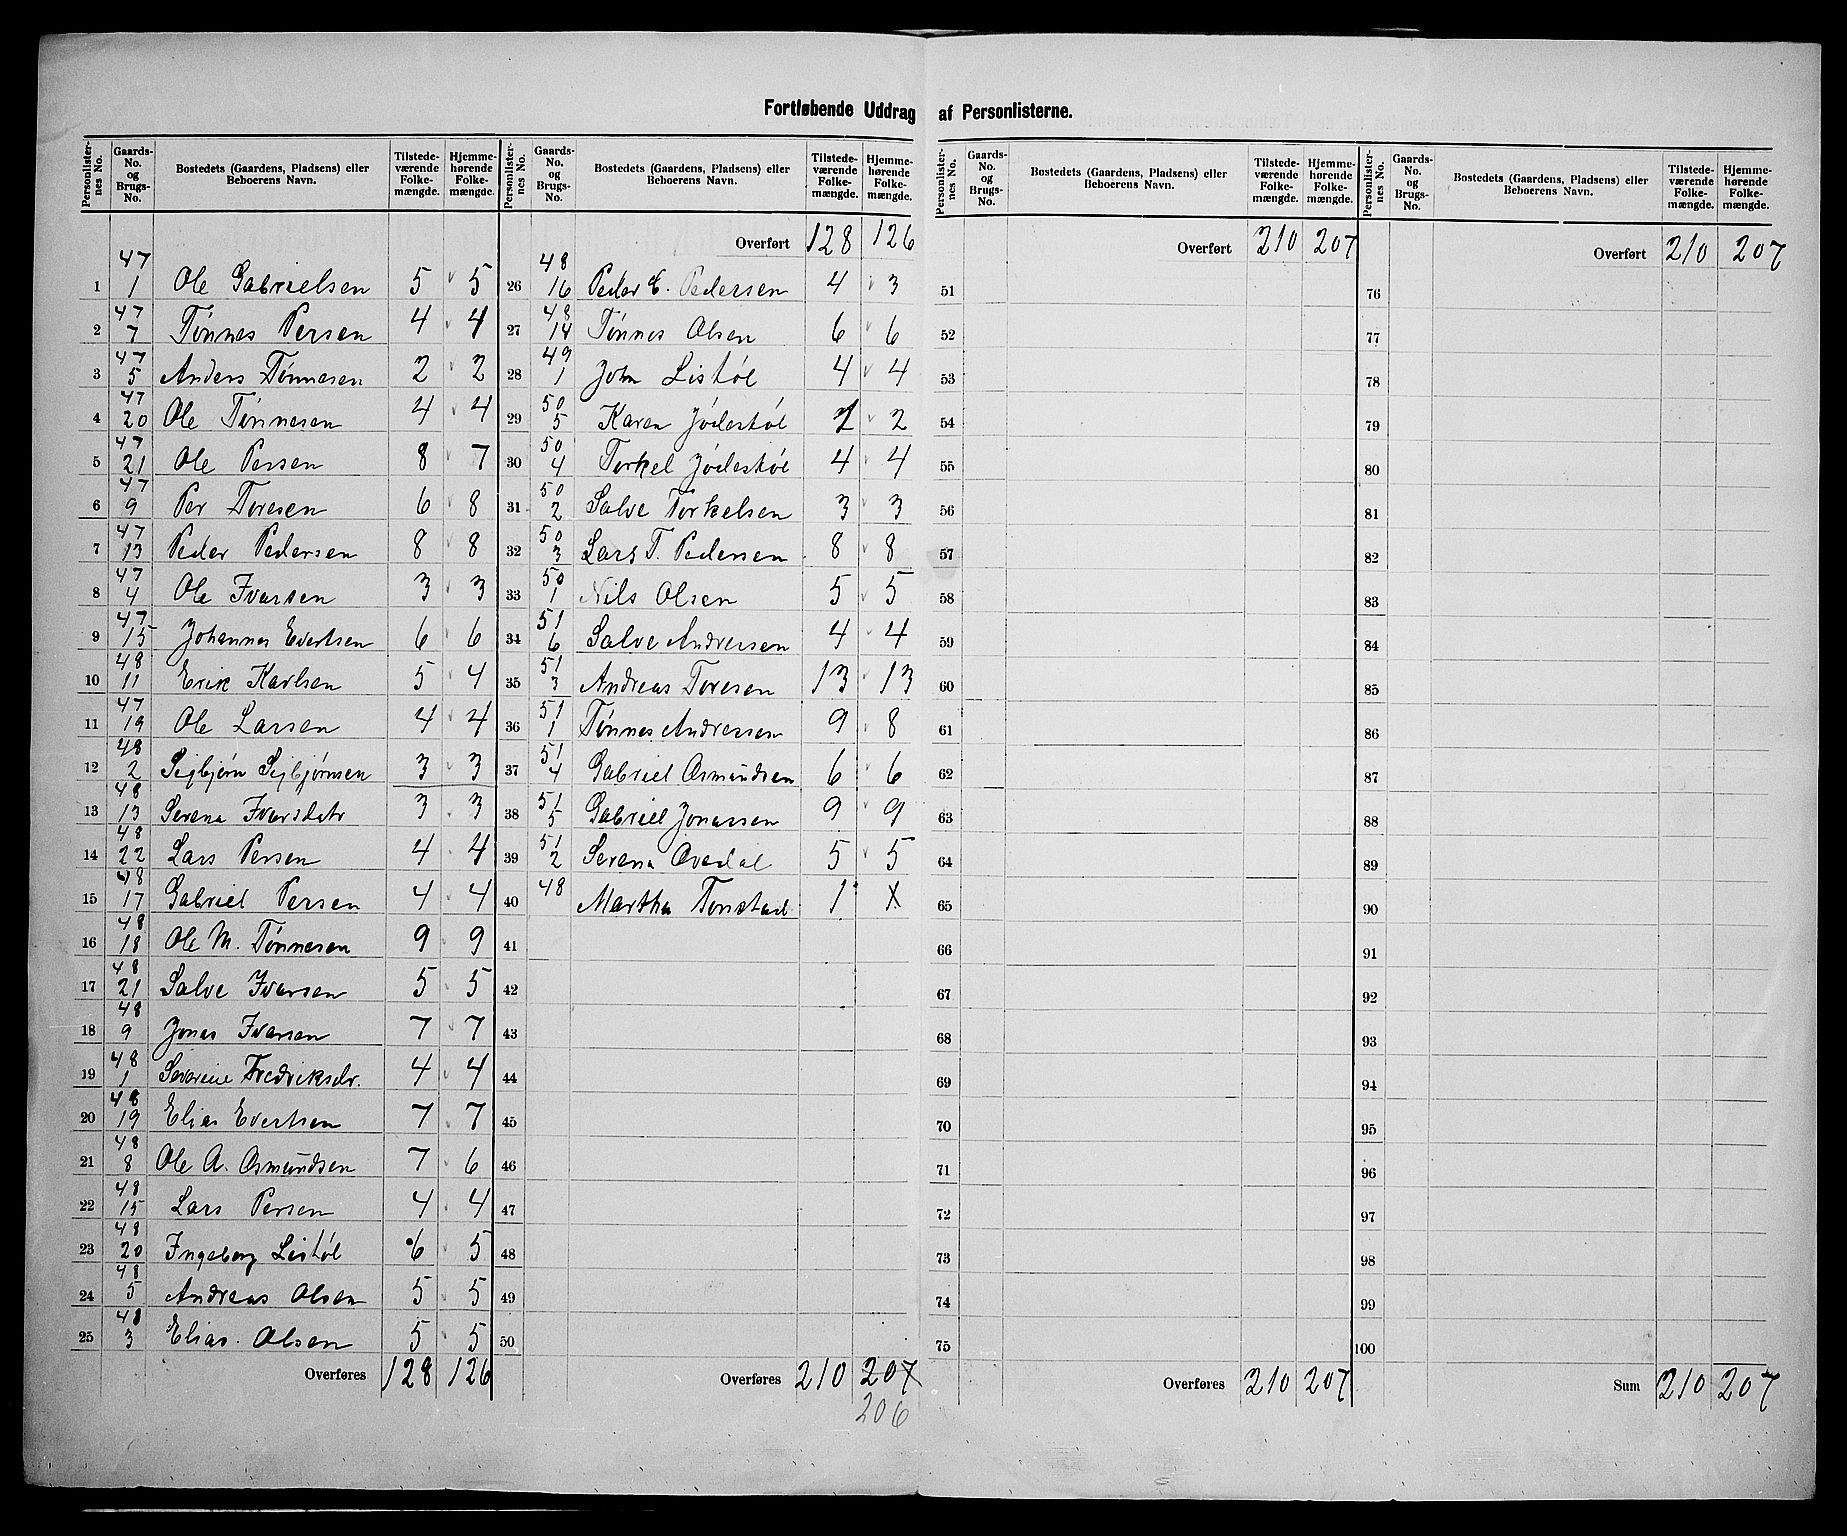 Fortløbende Uddrag af Personlisterne.
Personlisternes No. | Gaards-No. og Brugs-No. | Bostedets (Gaardens, Pladsens) eller Beboerens Navn. | Tilstedeværende Folkemængde. | Hjemmehørende Folkemængde.
1 47/1 Ole Gabrielsen 5 5
2 47/7 Tønnes Persen 4 4
3 47/5 Anders Tønnesen 2 2
4 47/20 Ole Tønnesen 4 4
5 47/21 Ole Persen 8 7
6 47/9 Per Toresen 6 8
7 47/13 Peder Pedersen 8 8
8 47/4 Ole Ivarsen 3 3
9 47/15 Johannes Evertsen 6 6
10 48/11 Erik Karlsen 5 4
11 47/19 Ole Larsen 4 4
12 48/2 Sigbjørn Sigbjørnsen 3 3
13 48/13 Serena Ivarsdatr 3 3
14 48/22 Lars Persen 4 4
15 48/17 Gabriel Persen 4 4
16 48/18 Ole M. Tønnesen 9 9
17 48/21 Salve Ivarsen 5 5
18 48/9 Jonas Ivarsen 7 7
19 48/1 Severine Fredriksdr. 4 4
20 48/19 Elias Evertsen 7 7
21 48/8 Ole A. Osmundsen 7 6
22 48/15 Lars Persen 4 4
23 48/20 Ingeborg Listøl 6 5
24 48/5 Andreas Olsen 5 5
25 48/3 Elias Olsen 5 5
Overføres 128 126
Personlisternes No. | Gaards-No. og Brugs-No. | Bostedets (Gaardens, Pladsens) eller Beboerens Navn. | Tilstedeværende Folkemængde. | Hjemmehørende Folkemængde.
Overført 128 126
26 48/16 Peder E. Pedersen 4 3
27 48/14 Tønnes Olsen 6 6
28 49/1 John Listøl 4 4
29 50/5 Karen Jødestøl 2
30 50/4 Torkel Jødestøl 4 4
31 50/2 Salve Torkelsen 3 3
32 50/3 Lars T. Pedersen 8 8
33 50/1 Nils Olsen 5 5
34 51/6 Salve Andersen 4 4
35 51/3 Andreas Toresen 13 13
36 51/1 Tønnes Andersen 9 8
37 51/4 Gabriel Osmundsen 6 6
38 51/5 Gabriel Jonassen 9 9
39 51/2 Serena Ovedal 5 5
40 48 Martha Tonstad 1 x
41
42
43
44
45
46
47
48
49
50
Overføres 210 207
206
Personlisternes No. | Gaards-No. og Brugs-No. | Bostedets (Gaardens, Pladsens) eller Beboerens Navn. | Tilstedeværende Folkemængde. | Hjemmehørende Folkemængde.
Overført 210 207
51
52
53
54
55
56
57
58
59
60
61
62
63
64
65
66
67
68
69
70
71
72
73
74
75
Overføres 210 207
Personlisternes No. | Gaards-No. og Brugs-No. | Bostedets (Gaardens, Pladsens) eller Beboerens Navn. | Tilstedeværende Folkemængde. | Hjemmehørende Folkemængde.
Overført 210 207
76
77
78
79
80
81
82
83
84
85
86
87
88
89
90
91
92
93
94
95
96
97
98
99
100
Sum 210 207